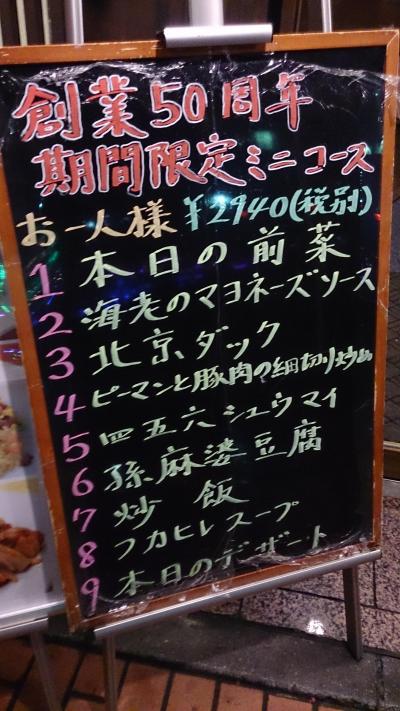 創業50周年
期間限定ミニコース
お一人様 ¥2940(税別)
1 本日の前菜
2 海老のマヨネーズソース
3 北京ダック
4 ピーマンと豚肉の細切り炒め
5 四五六シュウマイ
6 孫麻婆豆腐
7 炒飯
8 フカヒレスープ
9 本日のデザート